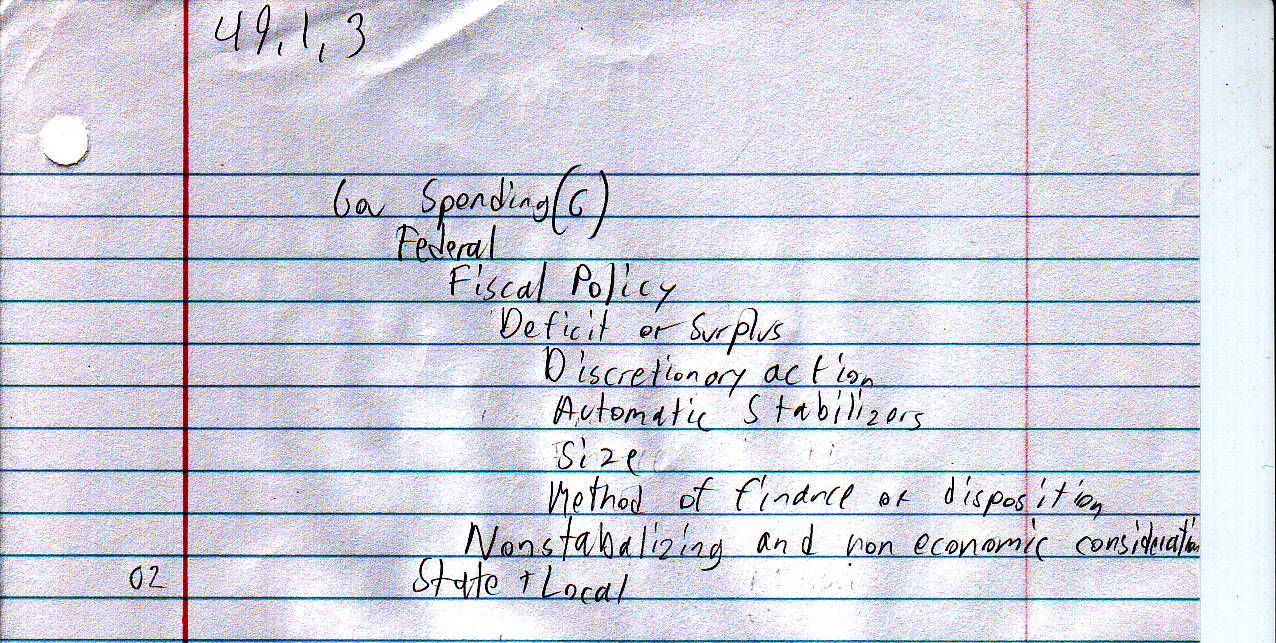 49,1,3
Gov Spending (G)
Federal
Fiscal Policy
Deficit or Surplus
Discretionary action
Automatic Stabilizers
Size
Method of finance or disposition
Nonstabalizing and non economic consideration
02 State + Local